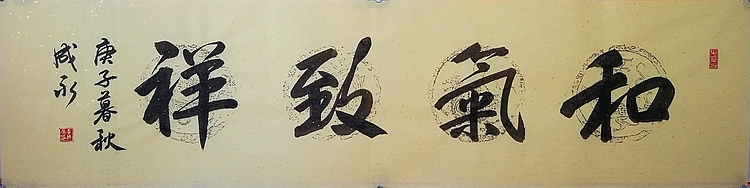 和氣致祥
庚子暮秋
成永